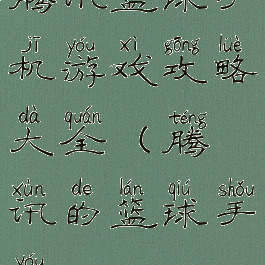 腾讯篮球手
jī yóu xì gōng luè
机游戏攻略
dà quán téng
大全(腾
xùn de lán qiú shǒu
讯的篮球手
yóu